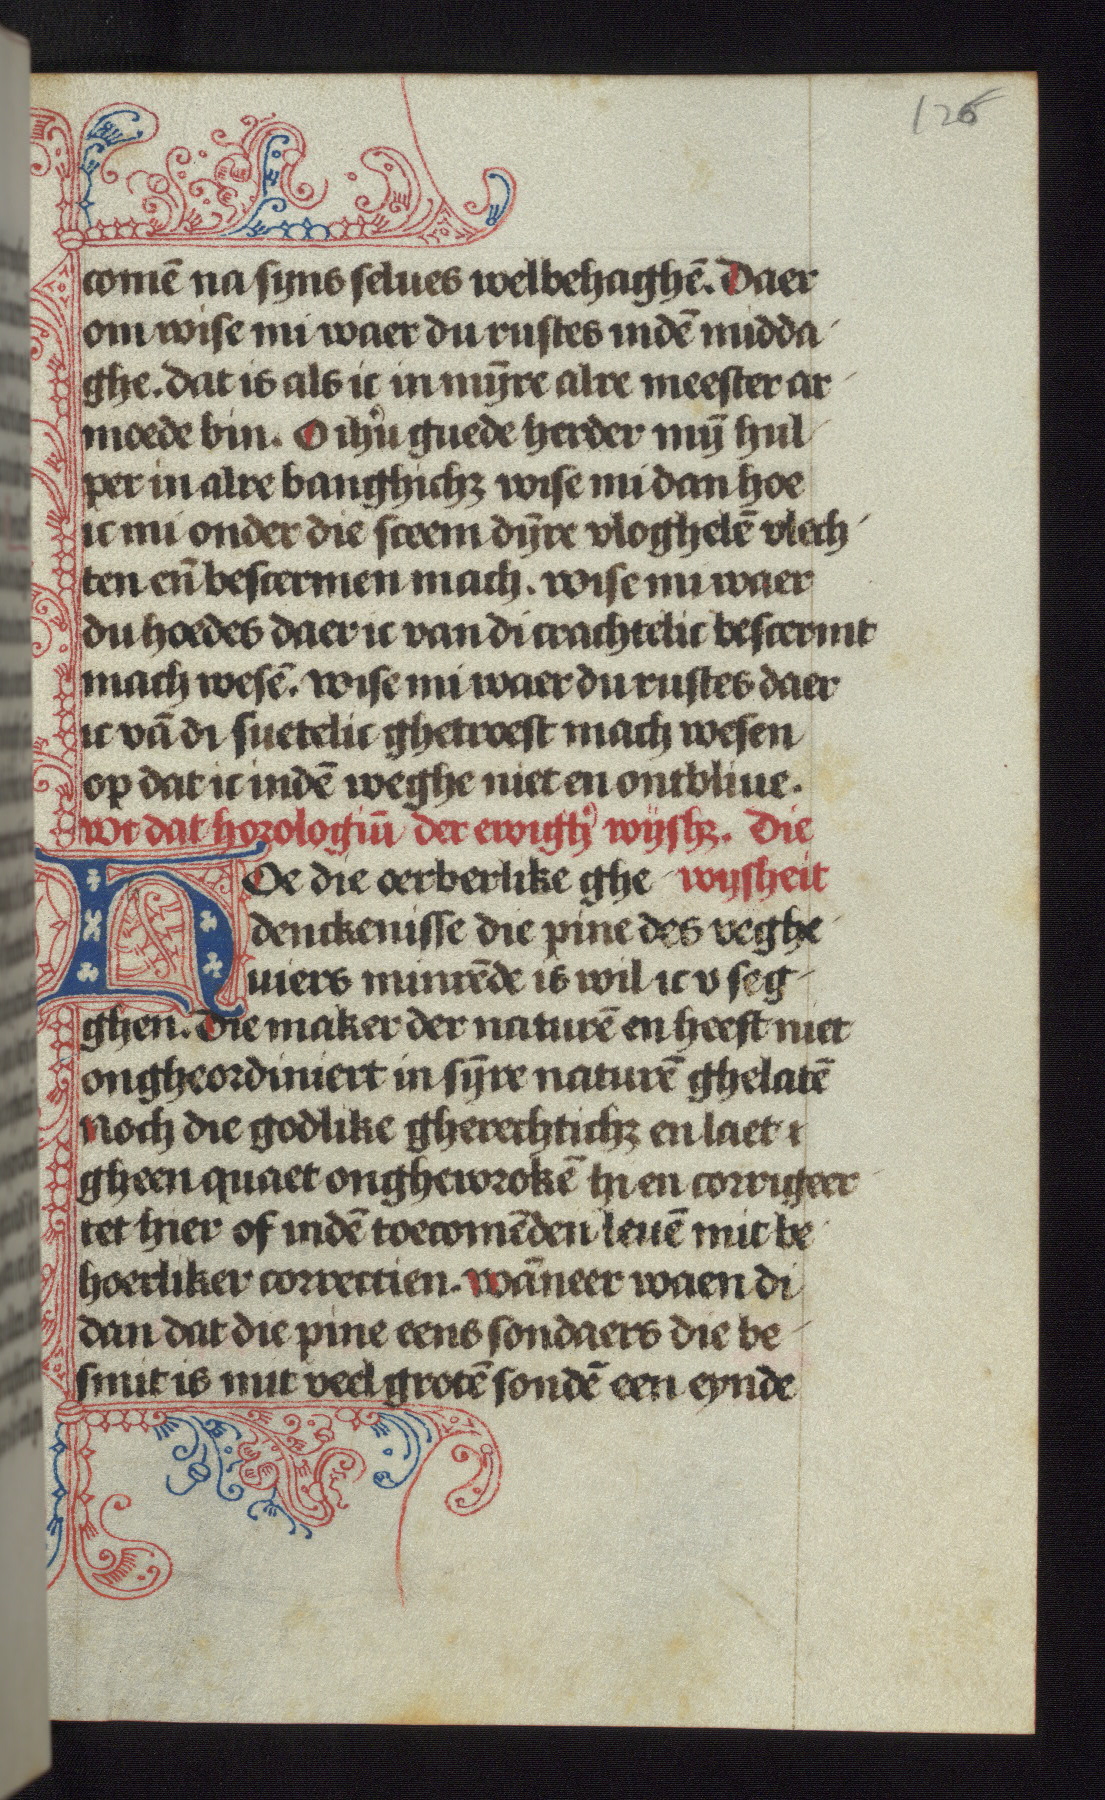 126
comē na syns selues welbehaghē. Daer
om wise mi waer du rustes indē midda
ghe. dat is als ic in mȳre alre meester ar
moede bin. O ihū guede herder mȳ hul
per in alre banghichꝫ wise mi dan hoe
ic mi onder die sceem dȳre vloghelē vlech
ten eñ bescermen mach. wise mi waer
du hoedes daer ic van di crachtelic bescermt
mach wesē. wise mi waer du rustes daer
ic vā di suetelic ghetroest mach wesen
op dat ic indē weghe niet en ontbliue.
wt dat horologiū der ewigh wijshꝫ. Die
HOe die oerberlike ghe wijsheit
denckenisse die pine des veghe
uiers minrēde is wil ic v seg
ghen. Die maker der naturē en heest niet
ongheordiniert in sȳre naturē ghelatē
Noch die godlike gherechtichꝫ en laet
gheen quaet onghewrokē hi en corrigeer
tet hier of indē toecomēden leuē mit be
hoerliker correctien. Wāneer waen di
dan dat die pine eens sondaers die be
smit is mit veel grotē sondē een eynde